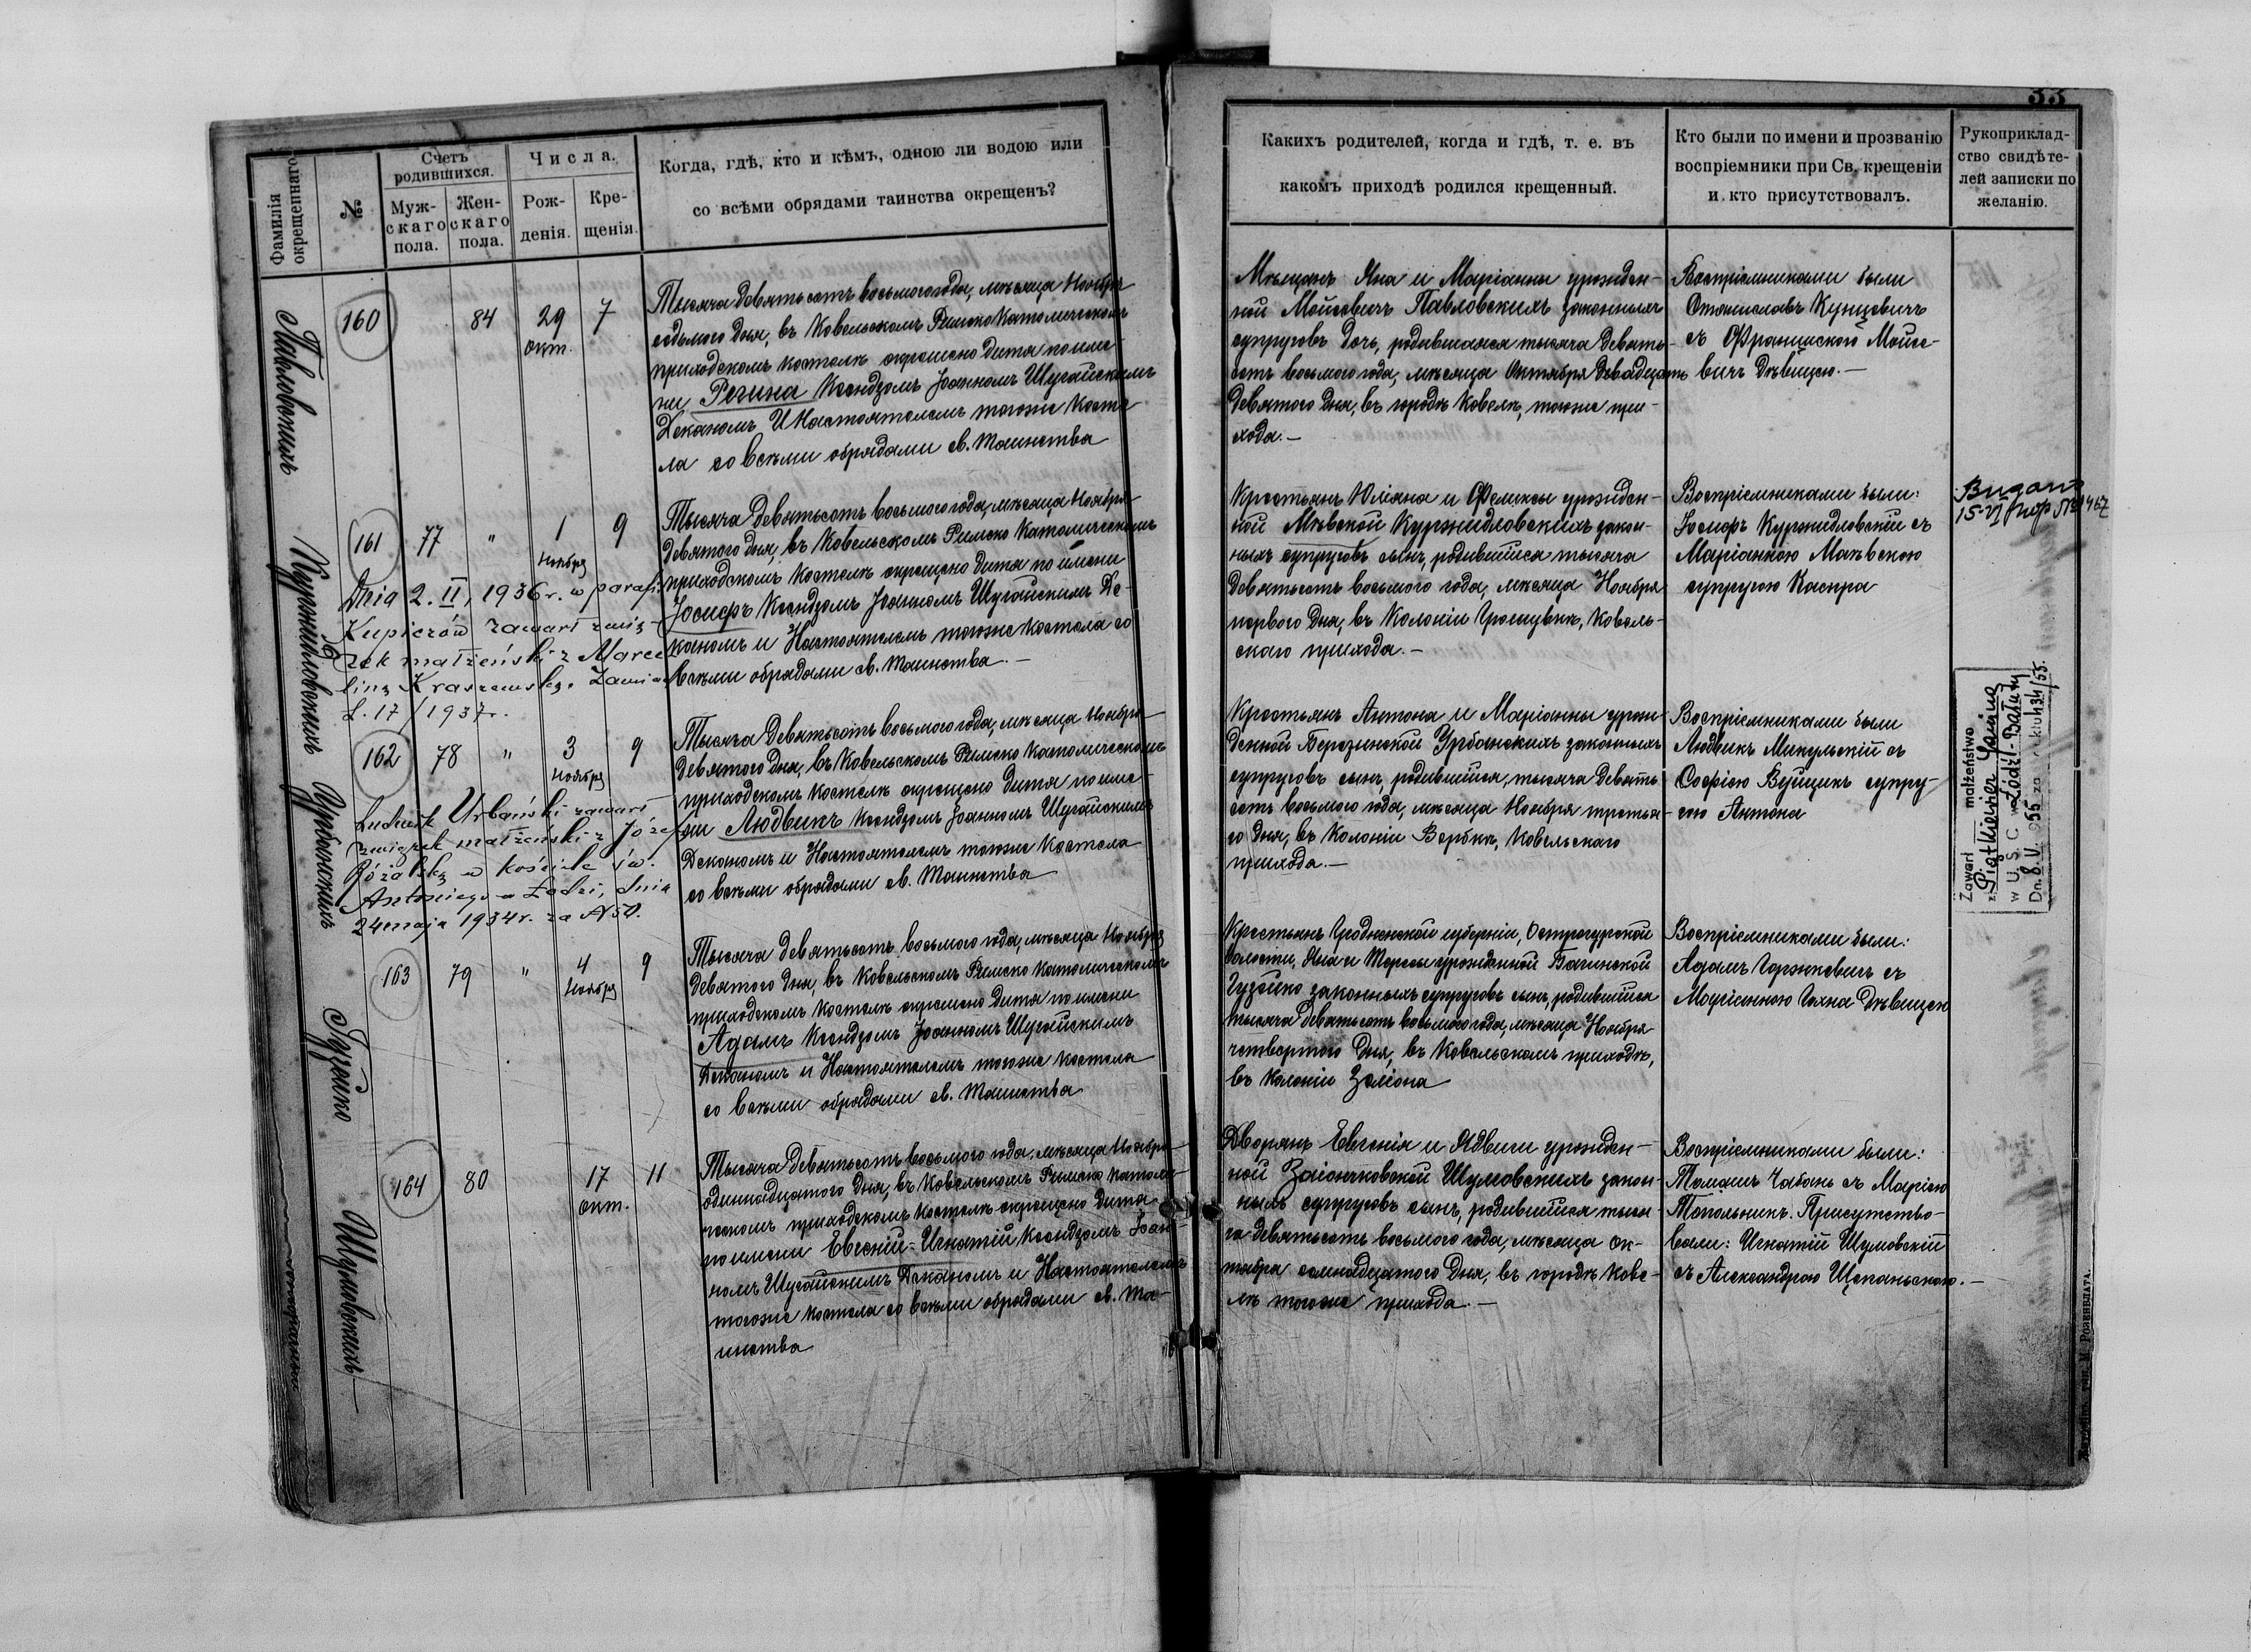 33
Фамилія окрещеннаго
№
Счетъ родившихся.
Муж-
скаго
пола.
Жен-
скаго
пола.
Числа.
Рож-
денія.
Кре-
щенія.
Когда, гдѣ, кто и кѣмъ, одною ли водою или
со всѣми обрядами таинства окрещенъ?
Какихъ родителей, когда и гдѣ, т. е. въ
какомъ приходѣ родился крещенный.
Кто были по имени и прозванію
воспріемники при Св. крещеніи
и кто присутствовалъ.
Рукоприклад-
ство свидѣте-
лей записки по
желанію.
Павловскихъ
160
84
29
окт.
7
Тысяча девятьсотъ восьмого года, мѣсяца Ноября
седьмого дня, въ Ковельскомъ Римско Католическомъ
приходскомъ костелѣ окрещено дитя по име-
ни Регина Ксендзомъ Іоанномъ Шугайскимъ
Деканомъ и Настоятелемъ тогоже косте-
ла со всѣми обрядами св. таинства
Мѣщанъ Яна и Маріанны урожден-
ной Мойсевичъ Павловскихъ законныхъ
супруговъ дочь, родившаяся тысяча девять-
сотъ восьмого года, мѣсяца Октября двадцать
девятого дня, въ городѣ Ковелѣ, тогоже при-
хода.—
Воспріемниками были
Станиславъ Кунцевичъ
съ Францишкою Мойсе-
вичъ дѣвицею.—
Куржидловскихъ
161
77
"
1
Ноября
9
Тысяча девятьсотъ восьмого года, мѣсяца Ноября
девятого дня, въ Ковельскомъ Римско Католическомъ
приходскомъ костелѣ окрещено дитя по имени
Іосифъ Ксендзомъ Іоанномъ Шугайскимъ Де-
каномъ и Настоятелемъ тогоже костела со
всѣми обрядами св. таинства.—
Dnia 2. II, 1936 r. w parafii
Kupiczów zawarł zwią-
zek małżeński z Marce
liną Kraszewską.
L. 17/1937 r.
Крестьянъ Юліана и Феликсы урожден-
ной Куржидловскихъ закон-
ныхъ супруговъ сынъ, родившійся тысяча
девятьсотъ восьмого года, мѣсяца Ноября
перваго дня, въ Колоніи Ковель-
скаго прихода.—
Воспріемниками были:
Іосифъ Куржидловскій съ
Маріанною
супругою Каспра
15-VI №1467
Урбанскихъ
162
78
"
3
Ноября
9
Тысяча девятьсотъ восьмого года, мѣсяца Ноября
девятого дня, въ Ковельскомъ Римско Католическомъ
приходскомъ костелѣ окрещено дитя по име-
ни Людвикъ Ксендзомъ Іоанномъ Шугайскимъ
Деканомъ и Настоятелемъ тогоже костела
со всѣми обрядами св. таинства
Ludwik Urbański zawarł
związek małżeński z Józefą
Różalską w kościele św.
Antoniego w Łodzi, dnia
24 maja 1934 r. za N 50.
Крестьянъ Антона и Маріанны урож-
денной Березинской Урбанскихъ законныхъ
супруговъ сынъ, родившійся, тысяча девять-
сотъ восьмого года, мѣсяца Ноября третья-
го дня, въ Колоніи Вербка, Ковельскаго
прихода.—
Воспріемниками были
Людвикъ Микульскій съ
Софіею Вуйцикъ супру-
гою Антона
Zawarł małżeństwo
z Piątkiewicz Janiną
w U.S.C. w Łódź-Bałuty
Dn. 8.V. 955 za aktu 434/55.
Гузейко
163
79
"
4
Ноября
9
Тысяча девятьсотъ восьмого года, мѣсяца Ноября
девятого дня, въ Ковельскомъ Римско Католическомъ
приходскомъ костелѣ окрещено дитя по имени
Адамъ Ксендзомъ Іоанномъ Шугайскимъ
Деканомъ и Настоятелемъ тогоже костела
со всѣми обрядами св. таинства
Крестьянъ Гродненской губерніи,
волости, Яна и Терезы урожденной Багинской
Гузейко законныхъ супруговъ сынъ, родившійся
тысяча девятьсотъ восьмого года, мѣсяца Ноября
четвертого дня, въ Ковельскомъ приходѣ,
въ Колоніи Зеліона
Воспріемниками были:
Адамъ съ
Маріанною дѣвицею
Шумовскихъ—
164
80
17
окт.
11
Тысяча девятьсотъ восьмого года, мѣсяца Ноября
одиннадцатого дня, въ Ковельскомъ Римско Католи-
ческомъ приходскомъ костелѣ окрещено дитя
по имени Евгеній-Игнатій Ксендзомъ Іоан-
номъ Шугайскимъ Деканомъ и Настоятелемъ
тогоже костела со всѣми обрядами св. та-
инства
Дворянъ Евгенія и Ядвиги урожден-
ной Заіончковской Шумовскихъ закон-
ныхъ супруговъ сынъ, родившійся тыся-
ча девятьсотъ восьмого года, мѣсяца Ок-
тября семнадцатого дня, въ городѣ Кове-
лѣ тогоже прихода.—
Воспріемниками были:
Томашъ Чабанъ съ Маріею
Топольникъ. Присутство-
вали: Игнатій Шумовскій
съ Александрою Щепаньскою.—